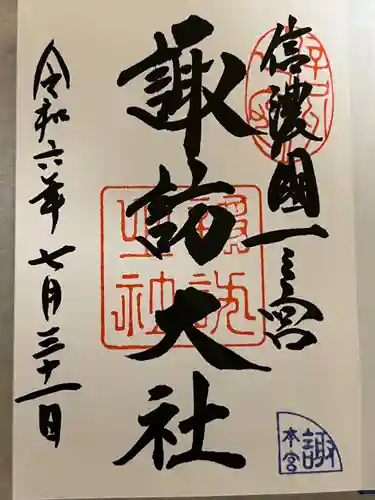 信濃國一之宮
諏訪大社
令和六年七月三十一日
諏訪
大社
諏
本宮